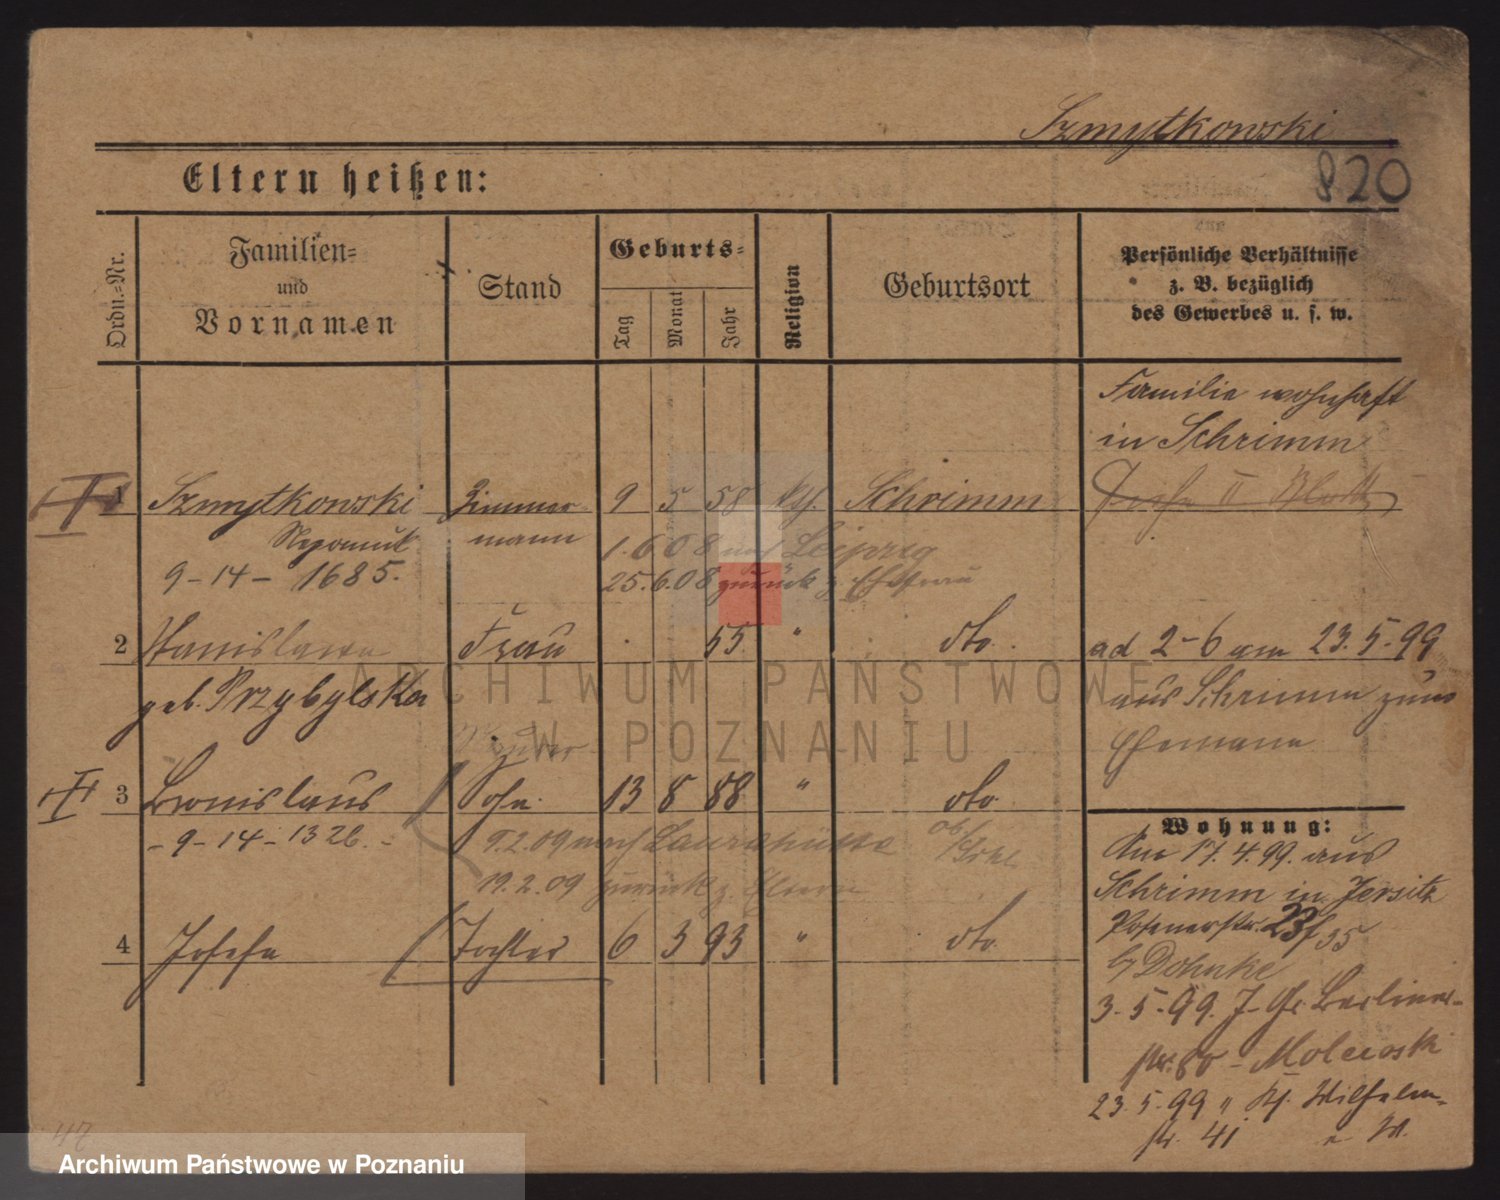 Szmytkowski
820
Eltern heißen:
Ordn.=Nr.
Familien=
und
Vornamen
Stand
Geburts=
Tag
Monat
Jahr
Religion
Geburtsort
Persönliche Verhältnisse
z. B. bezüglich
des Gewerbes u. s. w.
Familie wohnhaft
in Schrimm
1 Szmytkowski Zimmer- 9 5 58 kth. Schrimm
Nepomuk mann 1.6.08 nach Leipzig
9-14- 1685. 25.6.08 zurück z. Ehefrau
2 Stanislawa Frau 55 " dto. ad 2-6 am 23.5.99
geb. Przybylska aus Schrimm zum
Ehemann
3 Bronislaus Sohn 13 8 88 " dto.
-9-14-1326.- 9.2.09 nach Laurahütte
19.2.09 zurück z. Eltern
4 Josefa Tochter 6 3 93 " dto.
Wohnung:
Am 17.4.99. aus
Schrimm in Jersitz
Posenerstr. 23/35
b/ Dohnke
3.5.99. J. Gr. Berliner-
str. 80 - Molewski
23.5.99 " Kf. Wilhelm-
str. 41
ARCHIWUM PAŃSTWOWE
W POZNANIU
47
Archiwum Państwowe w Poznaniu